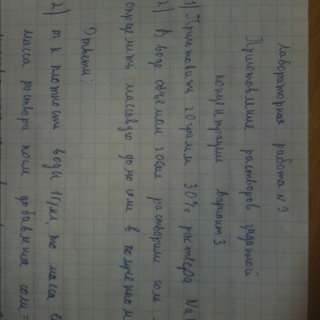 Лабораторная работа №9
Приготовление растворов заданной
концентрации Вариант 3
1) Приготовить 20 грамм 30% раствора Na
2) В воде объемом 200мл растворим сол
определить массовую долю соли в полученном
Ответы:
2) т к плотность воды 1г/мл, то масса е
масса раствора после добавления соли =